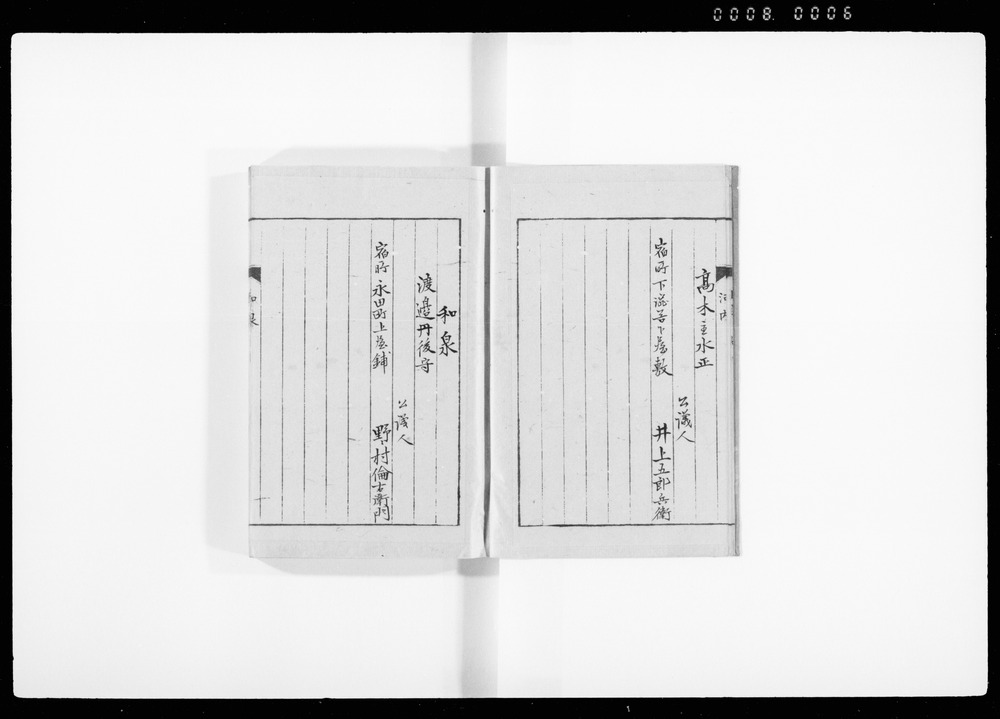 0008. 0006
河内
高木主水正
公議人
宿所 下渋谷下屋敷 井上五郎兵衛
和泉
渡邉丹後守
公議人
宿所 永田町上屋鋪 野村倫右衛門
和泉